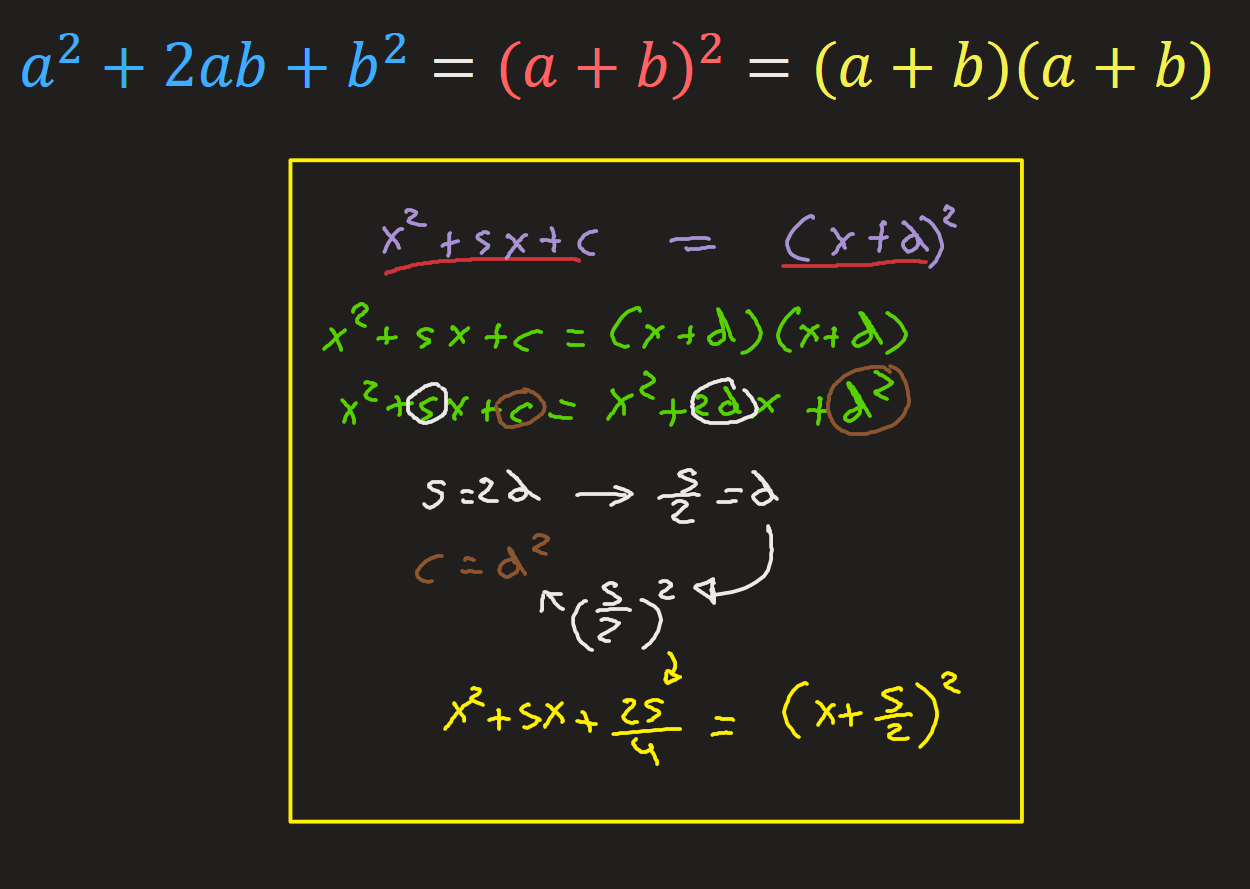 a² + 2ab + b² = (a + b)² = (a + b)(a + b)
x² + 5x + c = (x + d)²
x² + 5x + c = (x + d)(x + d)
x² + 5x + c = x² + 2dx + d²
5 = 2d → 5/2 = d
c = d²
(5/2)²
x² + 5x + 25/4 = (x + 5/2)²